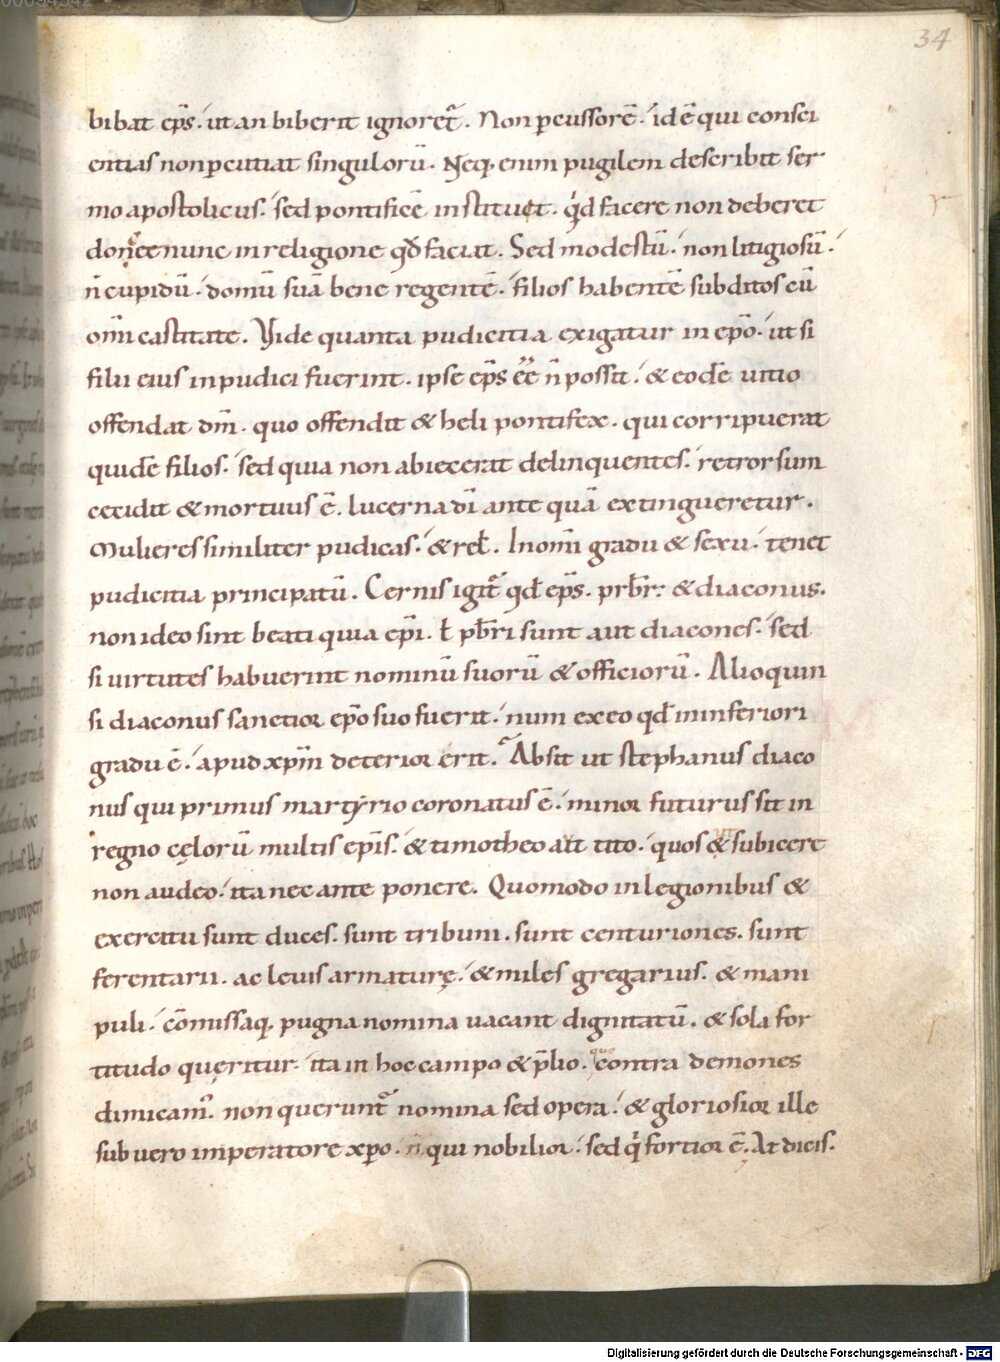 34
bibat ep̄s. ut an biberit ignoret᷑. Non ꝑcussorē. id ē qui consci
entias non ꝑcutiat singulorū. Neq; enim pugilem describit ser
mo apostolicus. sed pontificē instituit. qͥd facere non deberet
docet nunc in religione qđ faciat. Sed modestū. non litigiosū.
n̄ cupidū. domū suā bene regentē. filios habentē subditos cū
om̄i castitate. Vide quanta pudicitia exigatur in ep̄o. ut si
filii eius inpudici fuerint. ipse ep̄s ēē n̄ possit. & eodē uitio
offendat dm̄. quo offendit & heli pontifex. qui corripuerat
quidē filios. sed quia non abiecerat delinquentes. retrorsum
cecidit & mortuus ē. lucerna dī ante quā extingueretur.
Mulieres similiter pudicas. & rel̄. In om̄i gradu & sexu. tenet
pudicitia principatū. Cernis igit᷑ qđ ep̄s. prb̄r. & diaconus.
non ideo sint beati quia ep̄i. ł pb̄ri sunt aut diacones. sed
si uirtutes habuerint nominū suorū & officiorū. Alioquin
si diaconus sanctior ep̄o suo fuerit. num ex eo qđ in inferiori
gradu ē. apud xp̄m deterior erit. Absit ut stephanus diaco
nus qui primus martyrio coronatus ē. minor futurus sit in
regno cęlorū multis ep̄is. & timotheo att tito. quos & subicere
non audeo. ita nec ante ponere. Quomodo in legionibus &
exercitu sunt duces. sunt tribuni. sunt centuriones. sunt
ferentarii. ac leuis armaturę. & miles gregarius. & mani
puli. cōmissaq; pugna nomina uacant dignitatū. & sola for
titudo quęritur. ita in hoc campo & p̄lio. quo contra demones
dimicam᷒. non querunt᷑ nomina sed opera. & gloriosior ille
sub uero imperatore xp̄o. n̄ qui nobilior. sed qͥ fortior ē. At dicis.
Digitalisierung gefördert durch die Deutsche Forschungsgemeinschaft - DFG